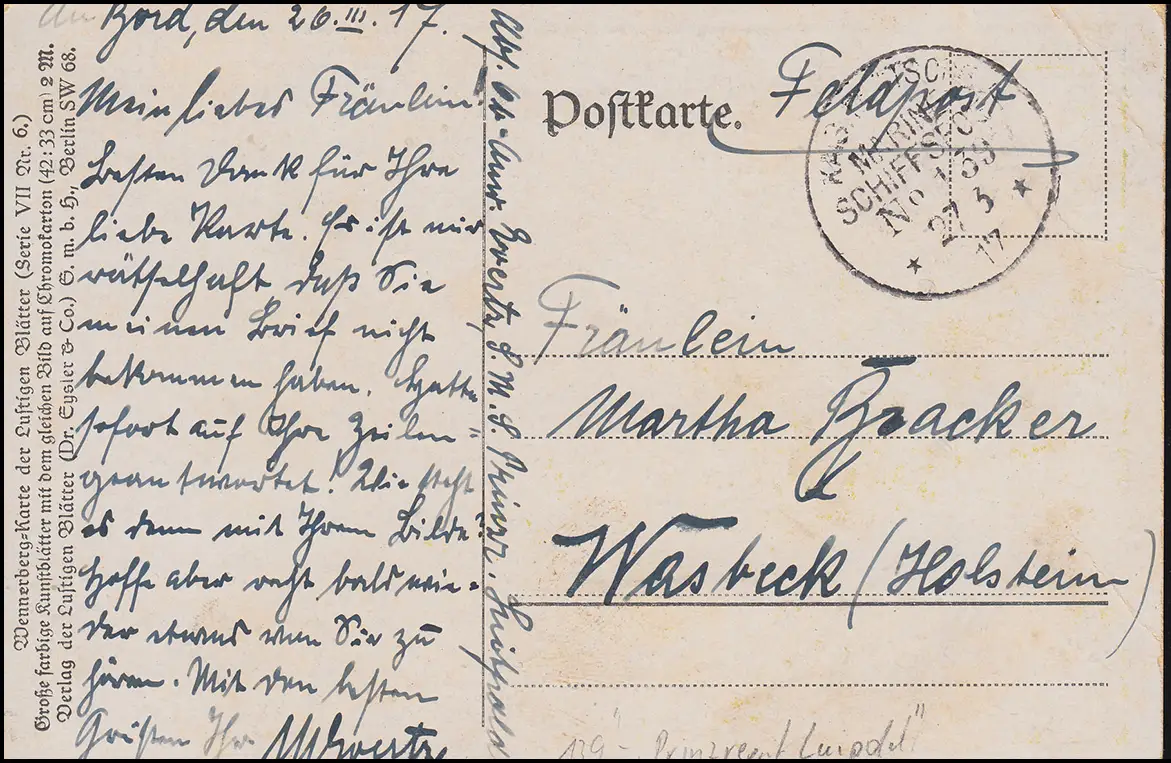 An Bord, den 26.III.17.
Mein liebes Fräulein.
Besten Dank für Ihre
liebe Karte. Es ist mir
rätselhaft daß Sie
meinen Brief nicht
bekommen haben. Hatte
sofort auf Ihre Zeilen
geantwortet! Wie steht
es denn mit Ihrem Bilde?
Hoffe aber recht bald wie=
der etwas von Sie zu
hören. Mit den besten
Grüßen Ihr
Abs. Evertz, S.M.S. Prinzr. Luitpold
Wennerberg-Karte der Lustigen Blätter (Serie VII Nr. 6.)
Große farbige Kunstblätter mit dem gleichen Bild auf Chromokarton (42:33 cm) 2 M.
Verlag der Lustigen Blätter (Dr. Eysler & Co.) G. m. b. H., Berlin SW 68.
Postkarte.
Feldpost
MARINE
SCHIFFSPOST
No 139
27 3
17
Fräulein
Martha Braacker
Wasbeck (Holstein)
139 - "Prinzregent Luitpold"